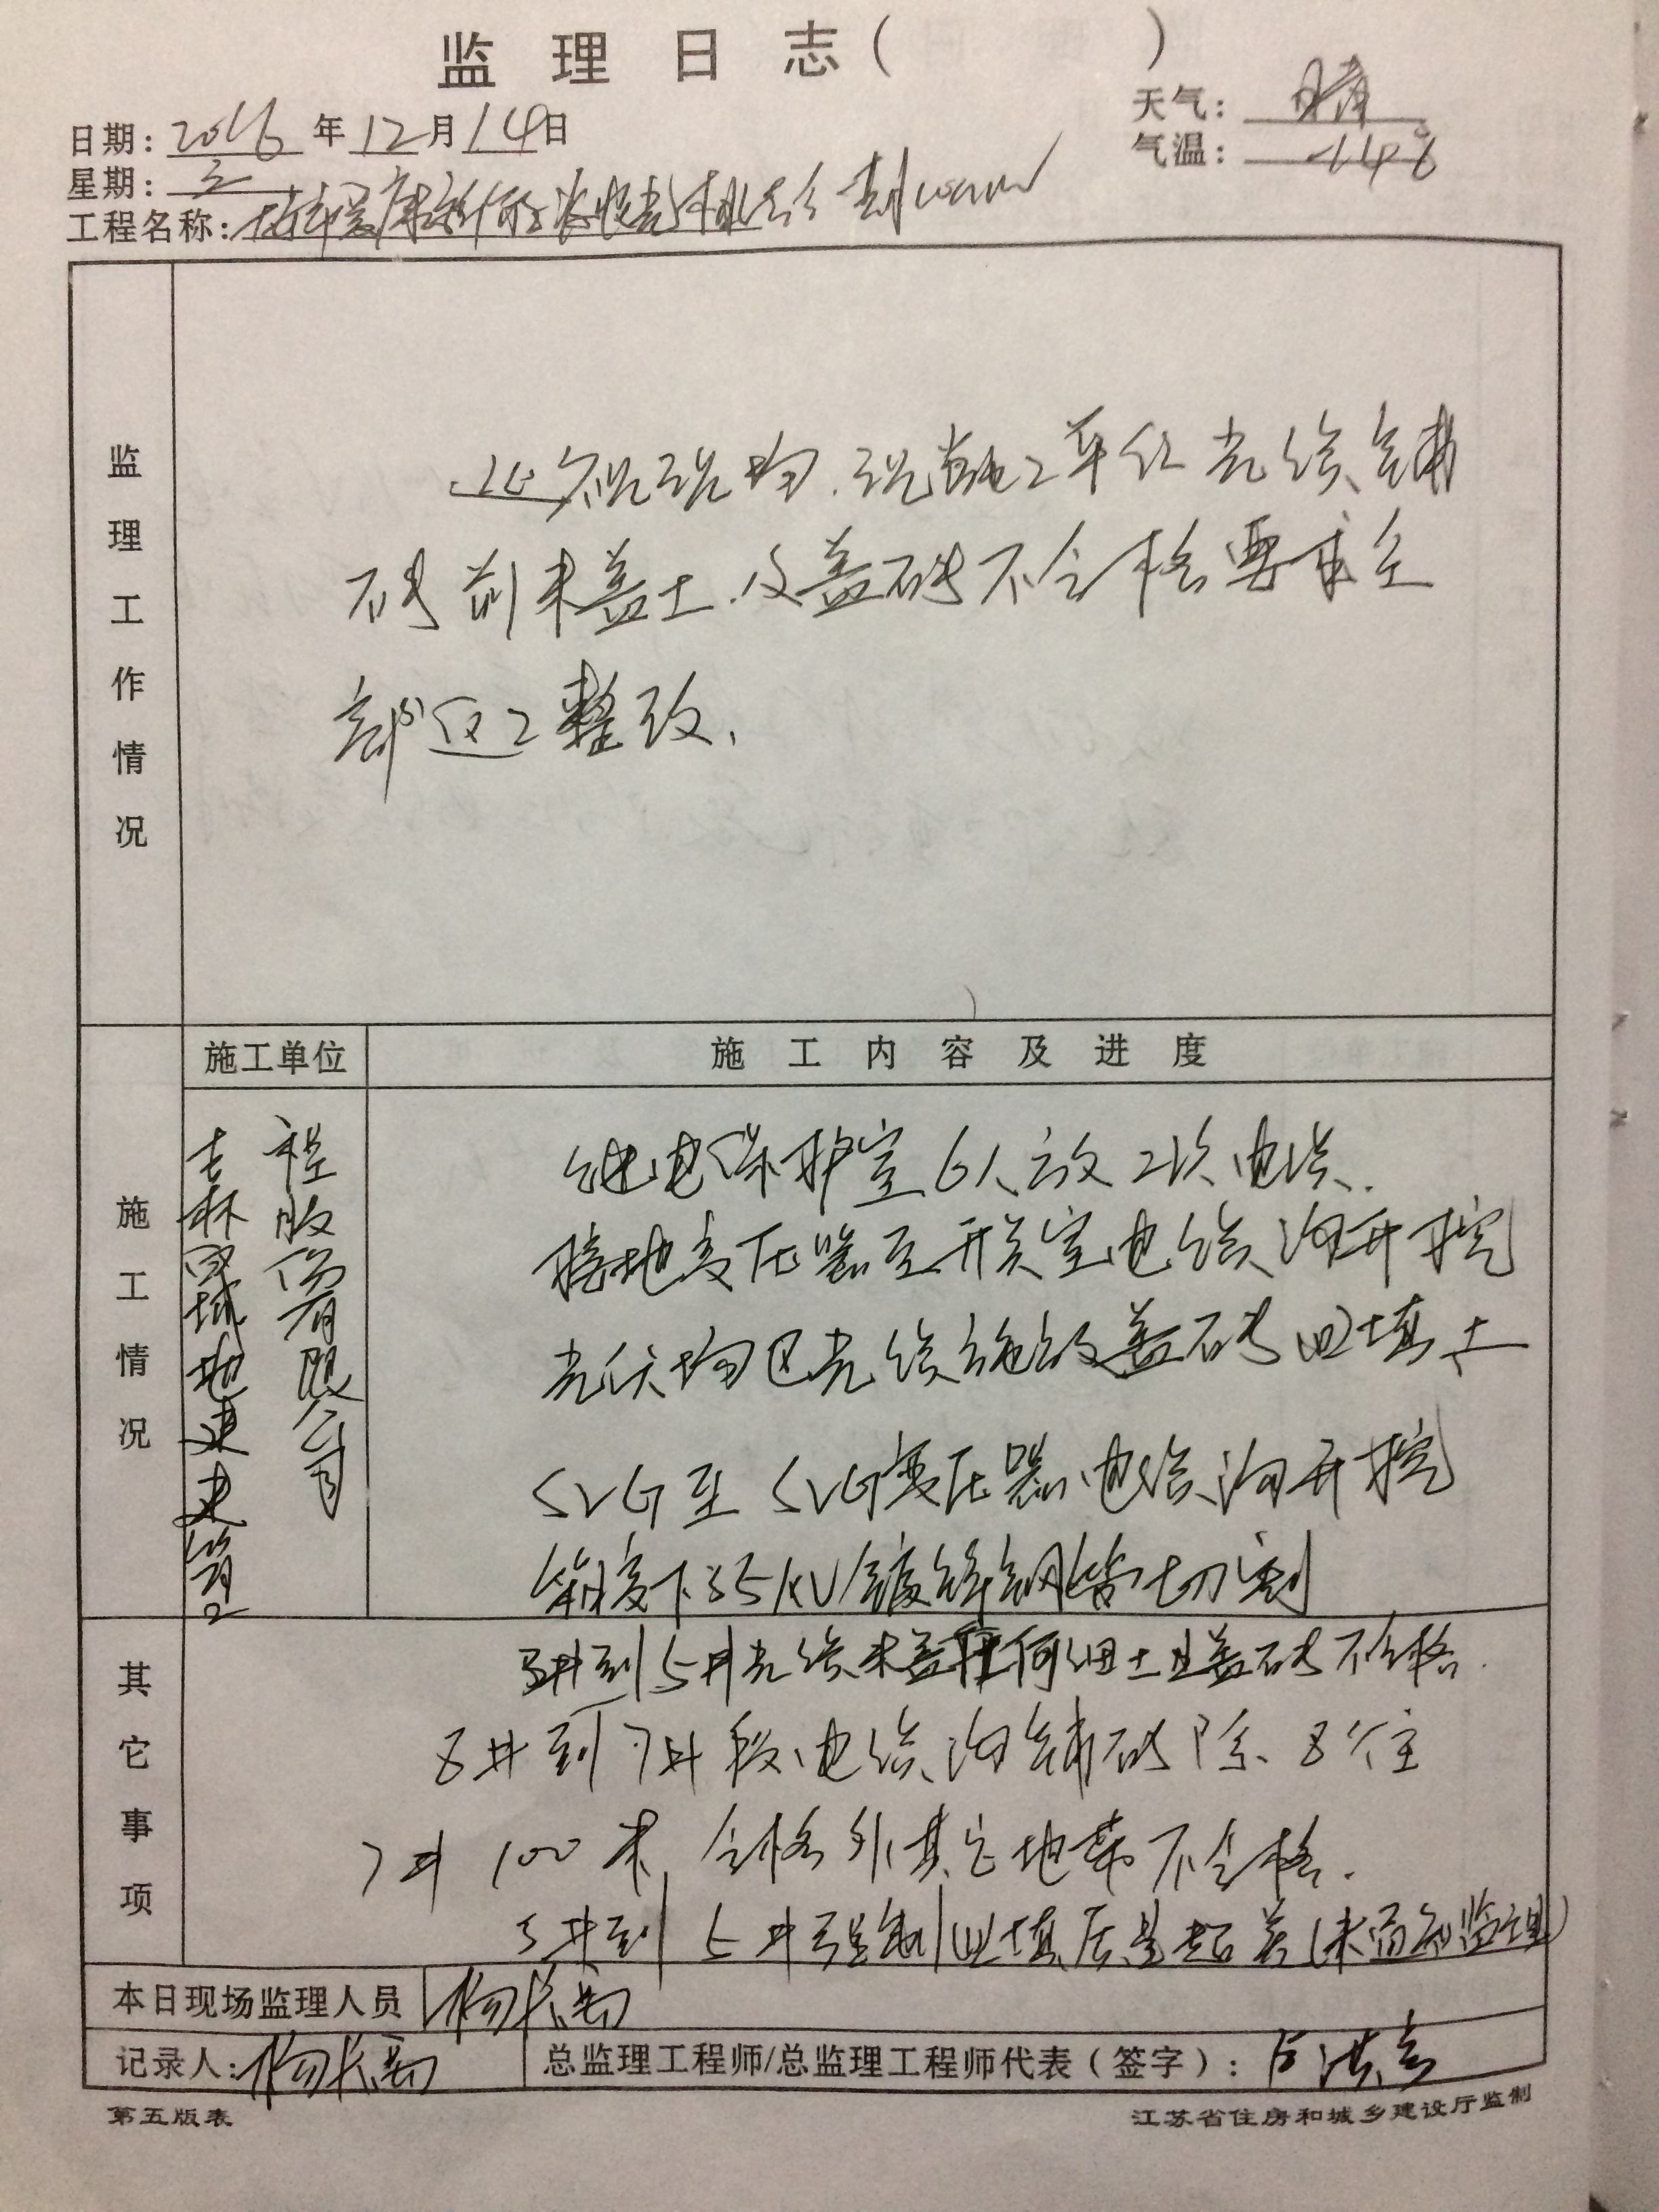 监理日志( )
日期: 2016 年 12 月 14 日
天气: 晴
星期: 三
气温:
工程名称:
监理工作情况
巡视现场.现施工单位光缆铺
砖前未盖土.及盖砖不合格要求全
部返工整改.
施工情况
施工单位
施工内容及进度
吉林 地建建筑工
程股份有限公司
继电保护室6人放二次电缆.
接地变压器至开关室电缆沟开挖
光伏场区光缆施放盖砖回填土
SVG至SVG变压器电缆沟开挖
箱变下35KV镀锌钢管切割
其它事项
3井到5井光缆未盖任何细土且盖砖不合格.
8井到7井段电缆沟铺砖除8个往
7井100米合格外其它地带不合格.
3井到5井强制回填质量超差(未通知监理)
本日现场监理人员
记录人:
总监理工程师/总监理工程师代表(签字):
第五版表
江苏省住房和城乡建设厅监制